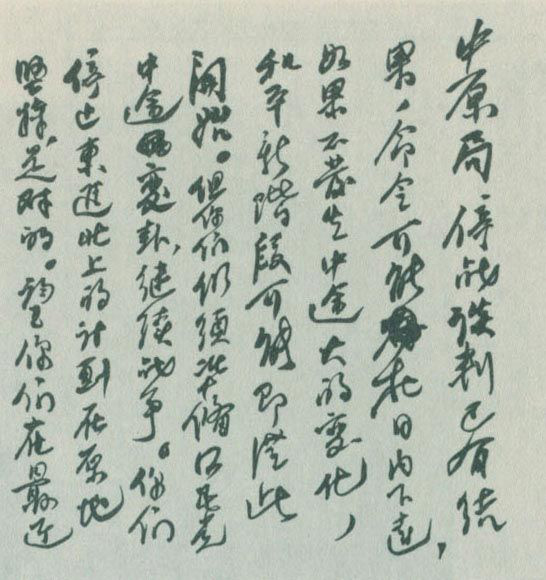 中原局 停战谈判已有结
果，命令可能於日内下达，
如果不发生中途大的变化，
和平新階段可能即從此
開始。但你们仍須準備国民党
中途变卦，继续战争。你们
停止東進北上的计划在原地
坚持，是对的。望你们在最近